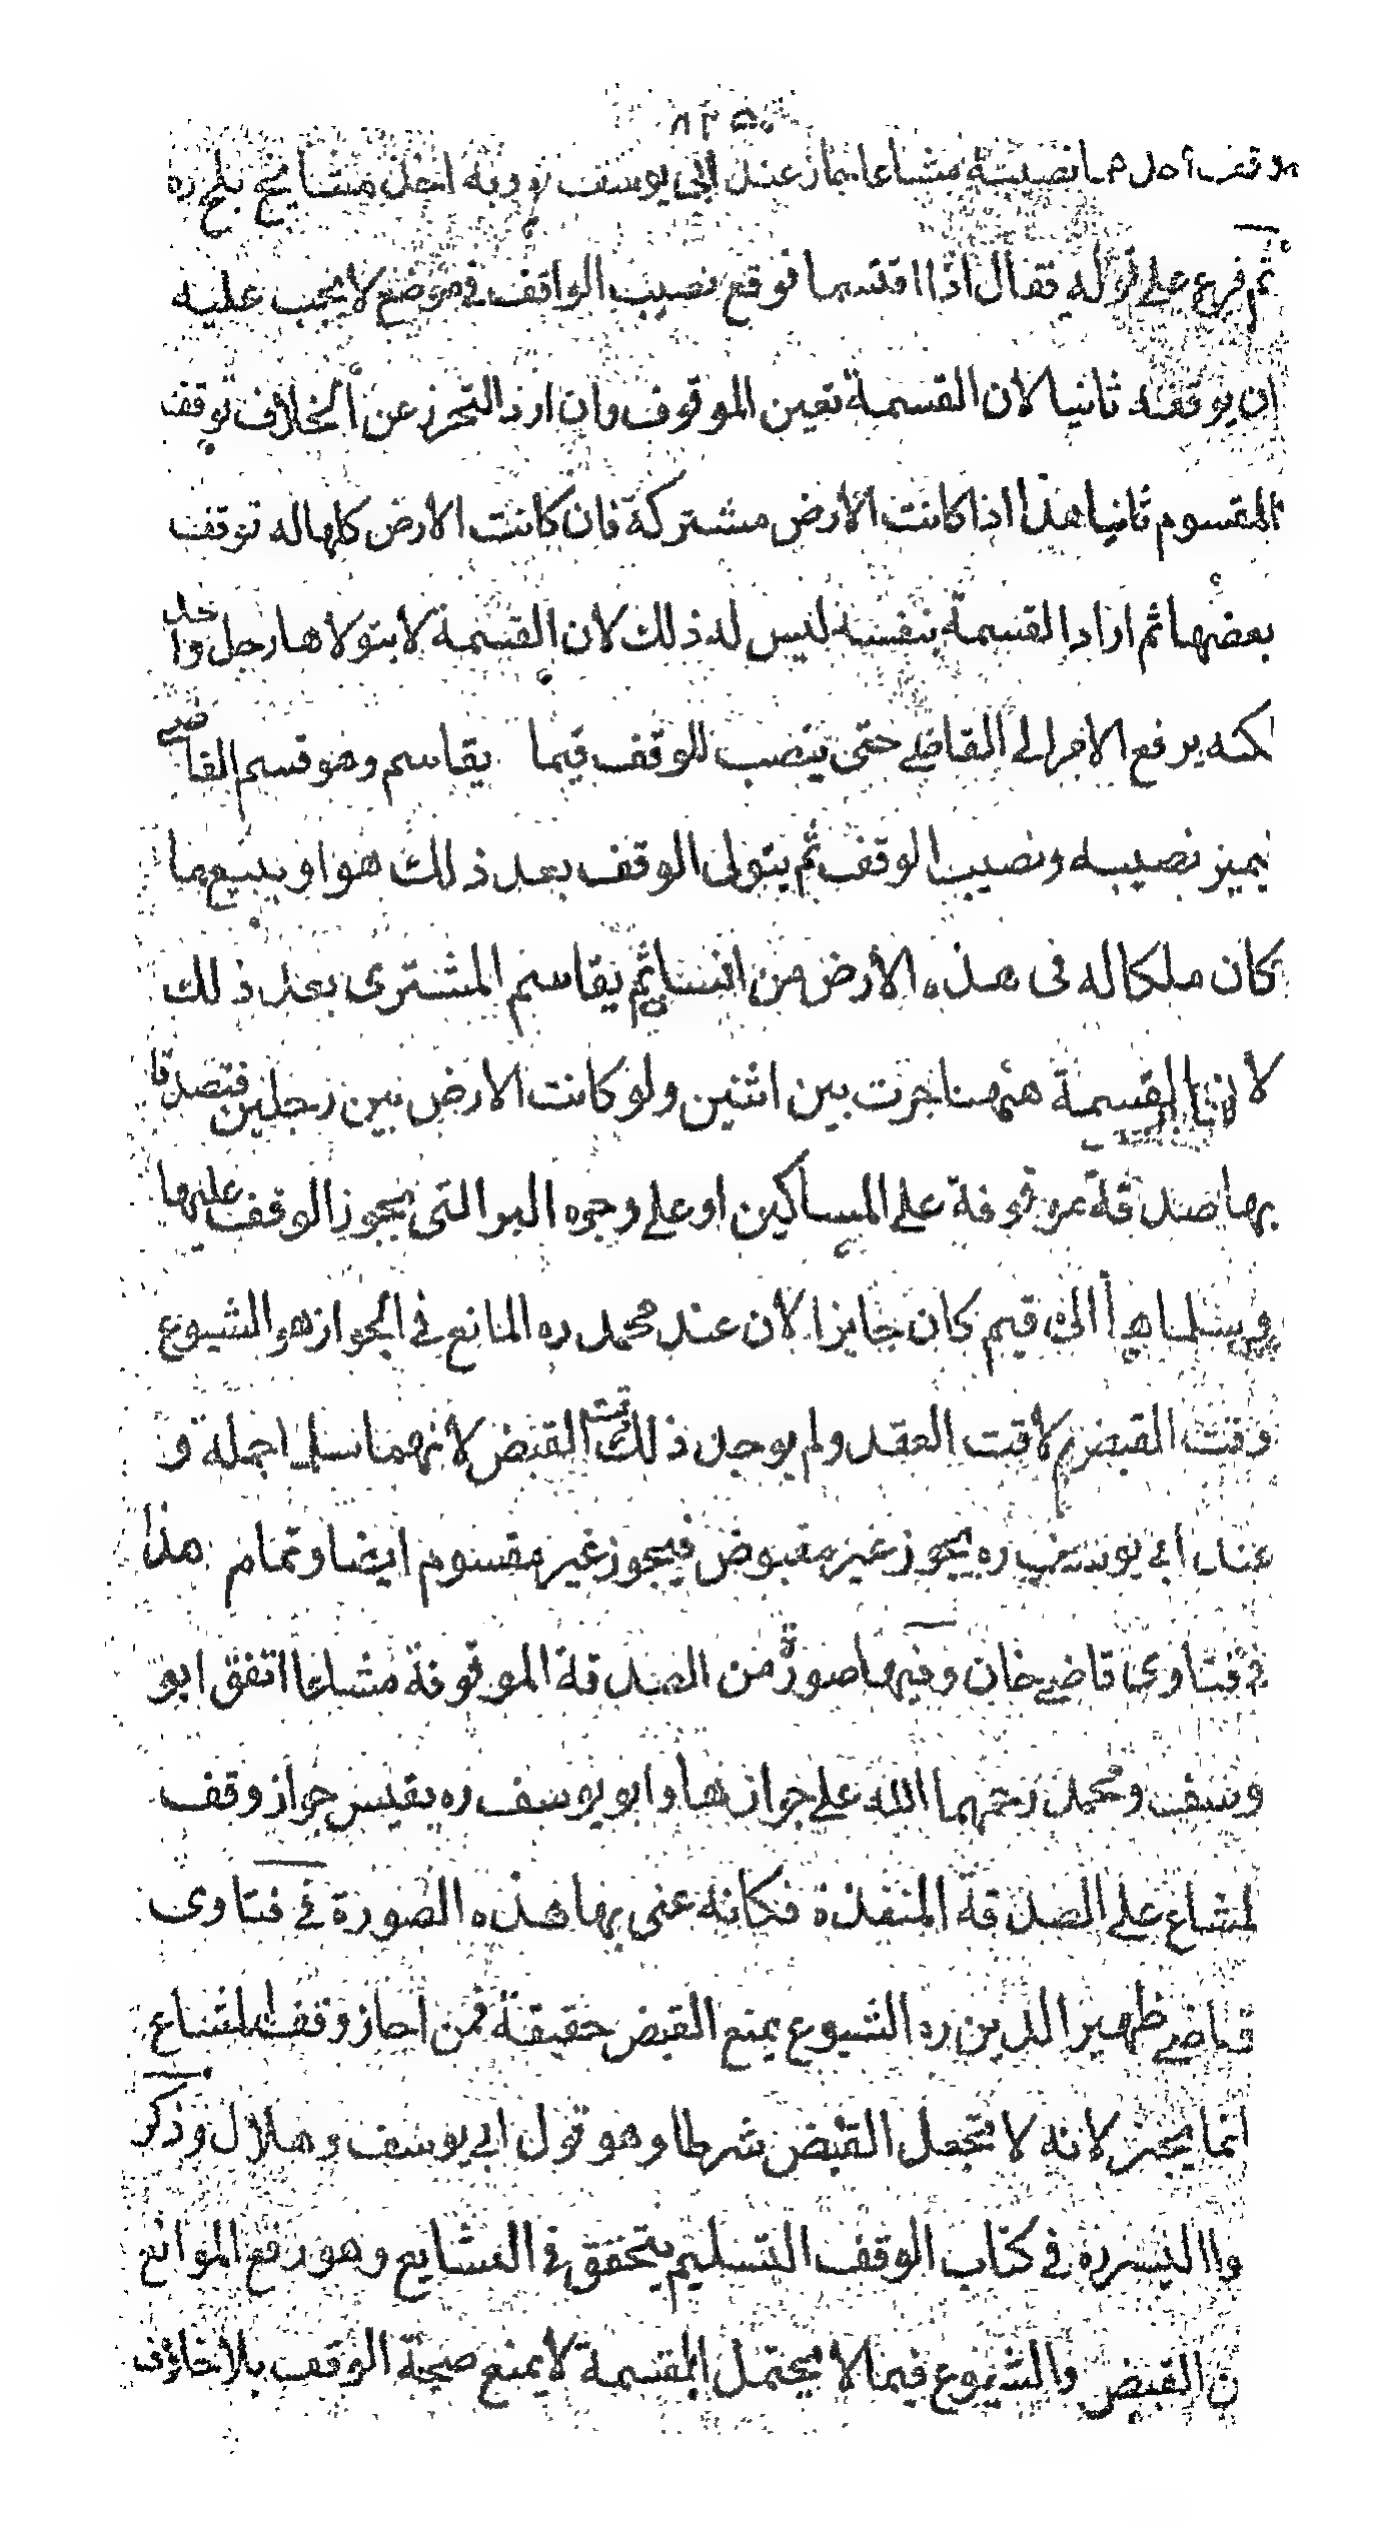 ٨٢٥
فوقف احدهما نصيبه مشاعا جاز عند ابي يوسف ره وبه اخذ مشايخ بلخ ره
ثم فرع على قوله فقال اذا اقتسما فوقع نصيب الواقف في موضع لا يجب عليه
ان يوقفه ثانيا لان القسمة تعين الموقوف وان ارد التحرز عن الخلاف توقف
المقسوم ثانيا هذا اذا كانت الارض مشتركة فان كانت الارض كلها له توقف
بعضها ثم اراد القسمة بنفسه ليس له ذلك لان القسمة لا يتولاها رجل واحد
لكنه يرفع الامر الى القاضي حتى ينصب للوقف قيما يقاسم وهو قسم القاضي
يميز نصيبه ونصيب الوقف ثم يتولى الوقف بعد ذلك هو او يبيع ما
كان ملكا له في هذه الارض من انسان ثم يقاسم المشترى بعد ذلك
لان القسمة ههنا جرت بين اثنين ولو كانت الارض بين رجلين فتصدقا
بها صدقة موقوفة على المساكين او على وجوه البر التي يجوز الوقف عليها
وسلماها الى قيم كان جايزا لان عند محمد ره المانع في الجواز هو الشيوع
وقت القبض لا وقت العقد ولم يوجد ذلك وقت القبض لانهما سلما جملة و
عند ابي يوسف ره يجوز غير مقبوض فيجوز غير مقسوم ايضا وتمام هذا
في فتاوى قاضيخان وفيها صورة من الصدقة الموقوفة مشاعا اتفق ابو
وسف ومحمد رحمهما الله على جوازها وابو يوسف ره يقيس جواز وقف
لمشاع على الصدقة المنفذة فكانه عنى بها هذه الصورة في فتاوى
قاضي ظهير الدين ره الشيوع يمنع القبض حقيقة فمن اجاز وقف المشاع
انما يجيز لانه لا يجعل القبض شرطا وهو قول ابي يوسف وهلال وذكر
وا اليسر ره في كتاب الوقف التسليم يتحقق في الشايع وهو رفع الموانع
ن القبض والشيوع فيما لا يحتمل القسمة لا يمنع صحة الوقف بلا خلاف